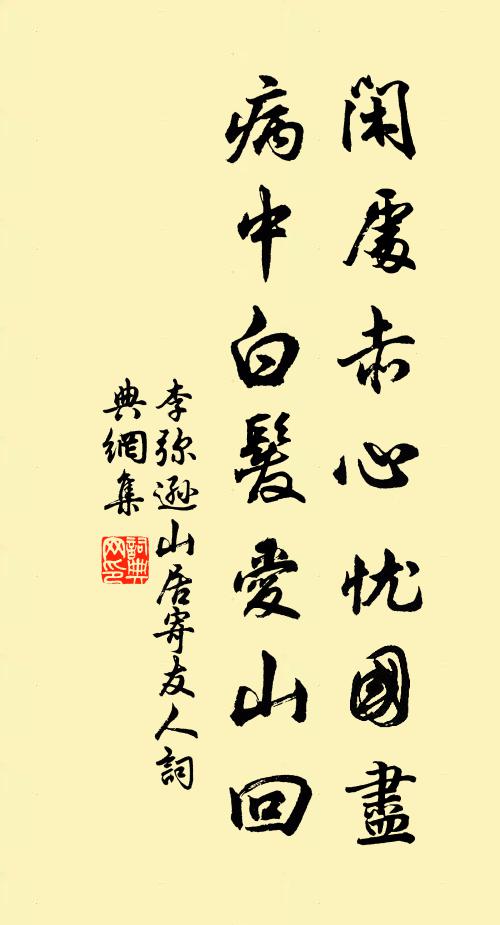 閑處赤心忧國盡
病中白髮愛山回
李弥遜山居寄友人詞
典網集
詞典
网印